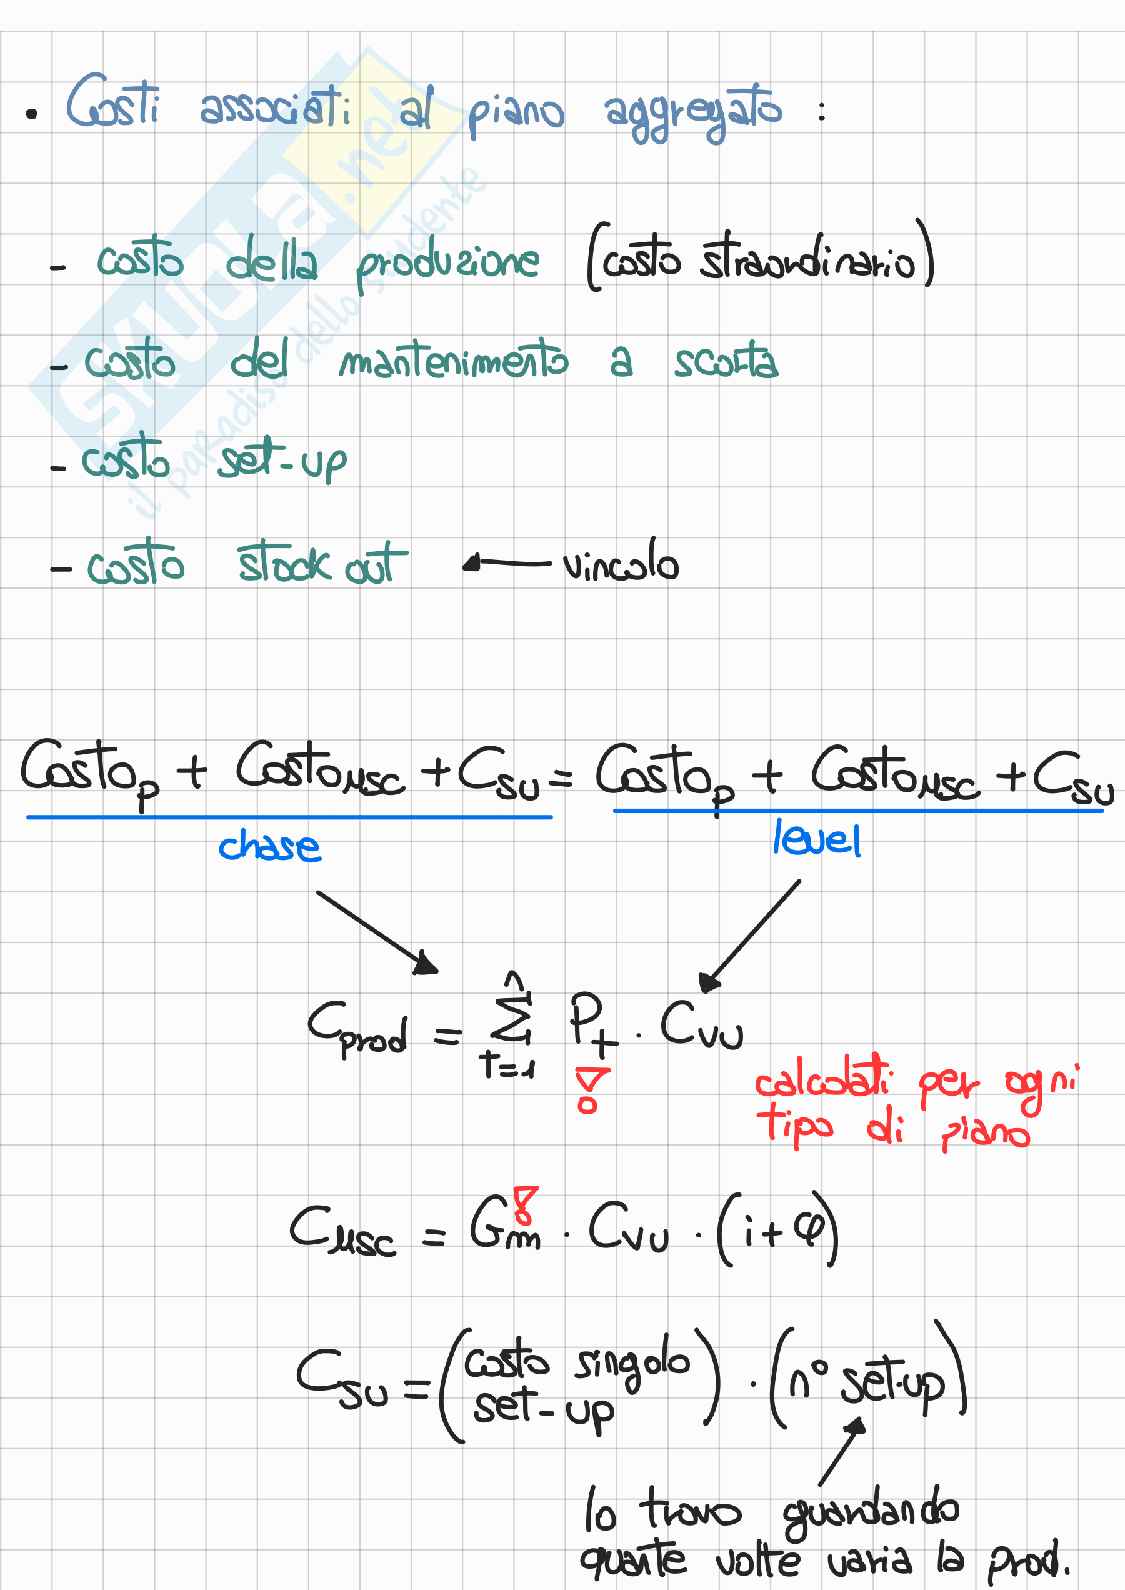 • Costi associati al piano aggregato :
- costo della produzione (costo straordinario)
- costo del mantenimento a scorta
- costo set-up
- costo stock out ← vincolo
Costo_p + Costo_μsc + C_su = Costo_p + Costo_μsc + C_su
chase
level
C_prod = Σ_{t=1}^{n} P_t · C_vu
calcolati per ogni
tipo di piano
C_μsc = G_m · C_vu · (i + φ)
C_su = (costo singolo set-up) · (n° set-up)
lo trovo guardando
quante volte varia la prod.
SKUOLA.net
il paradiso dello studente